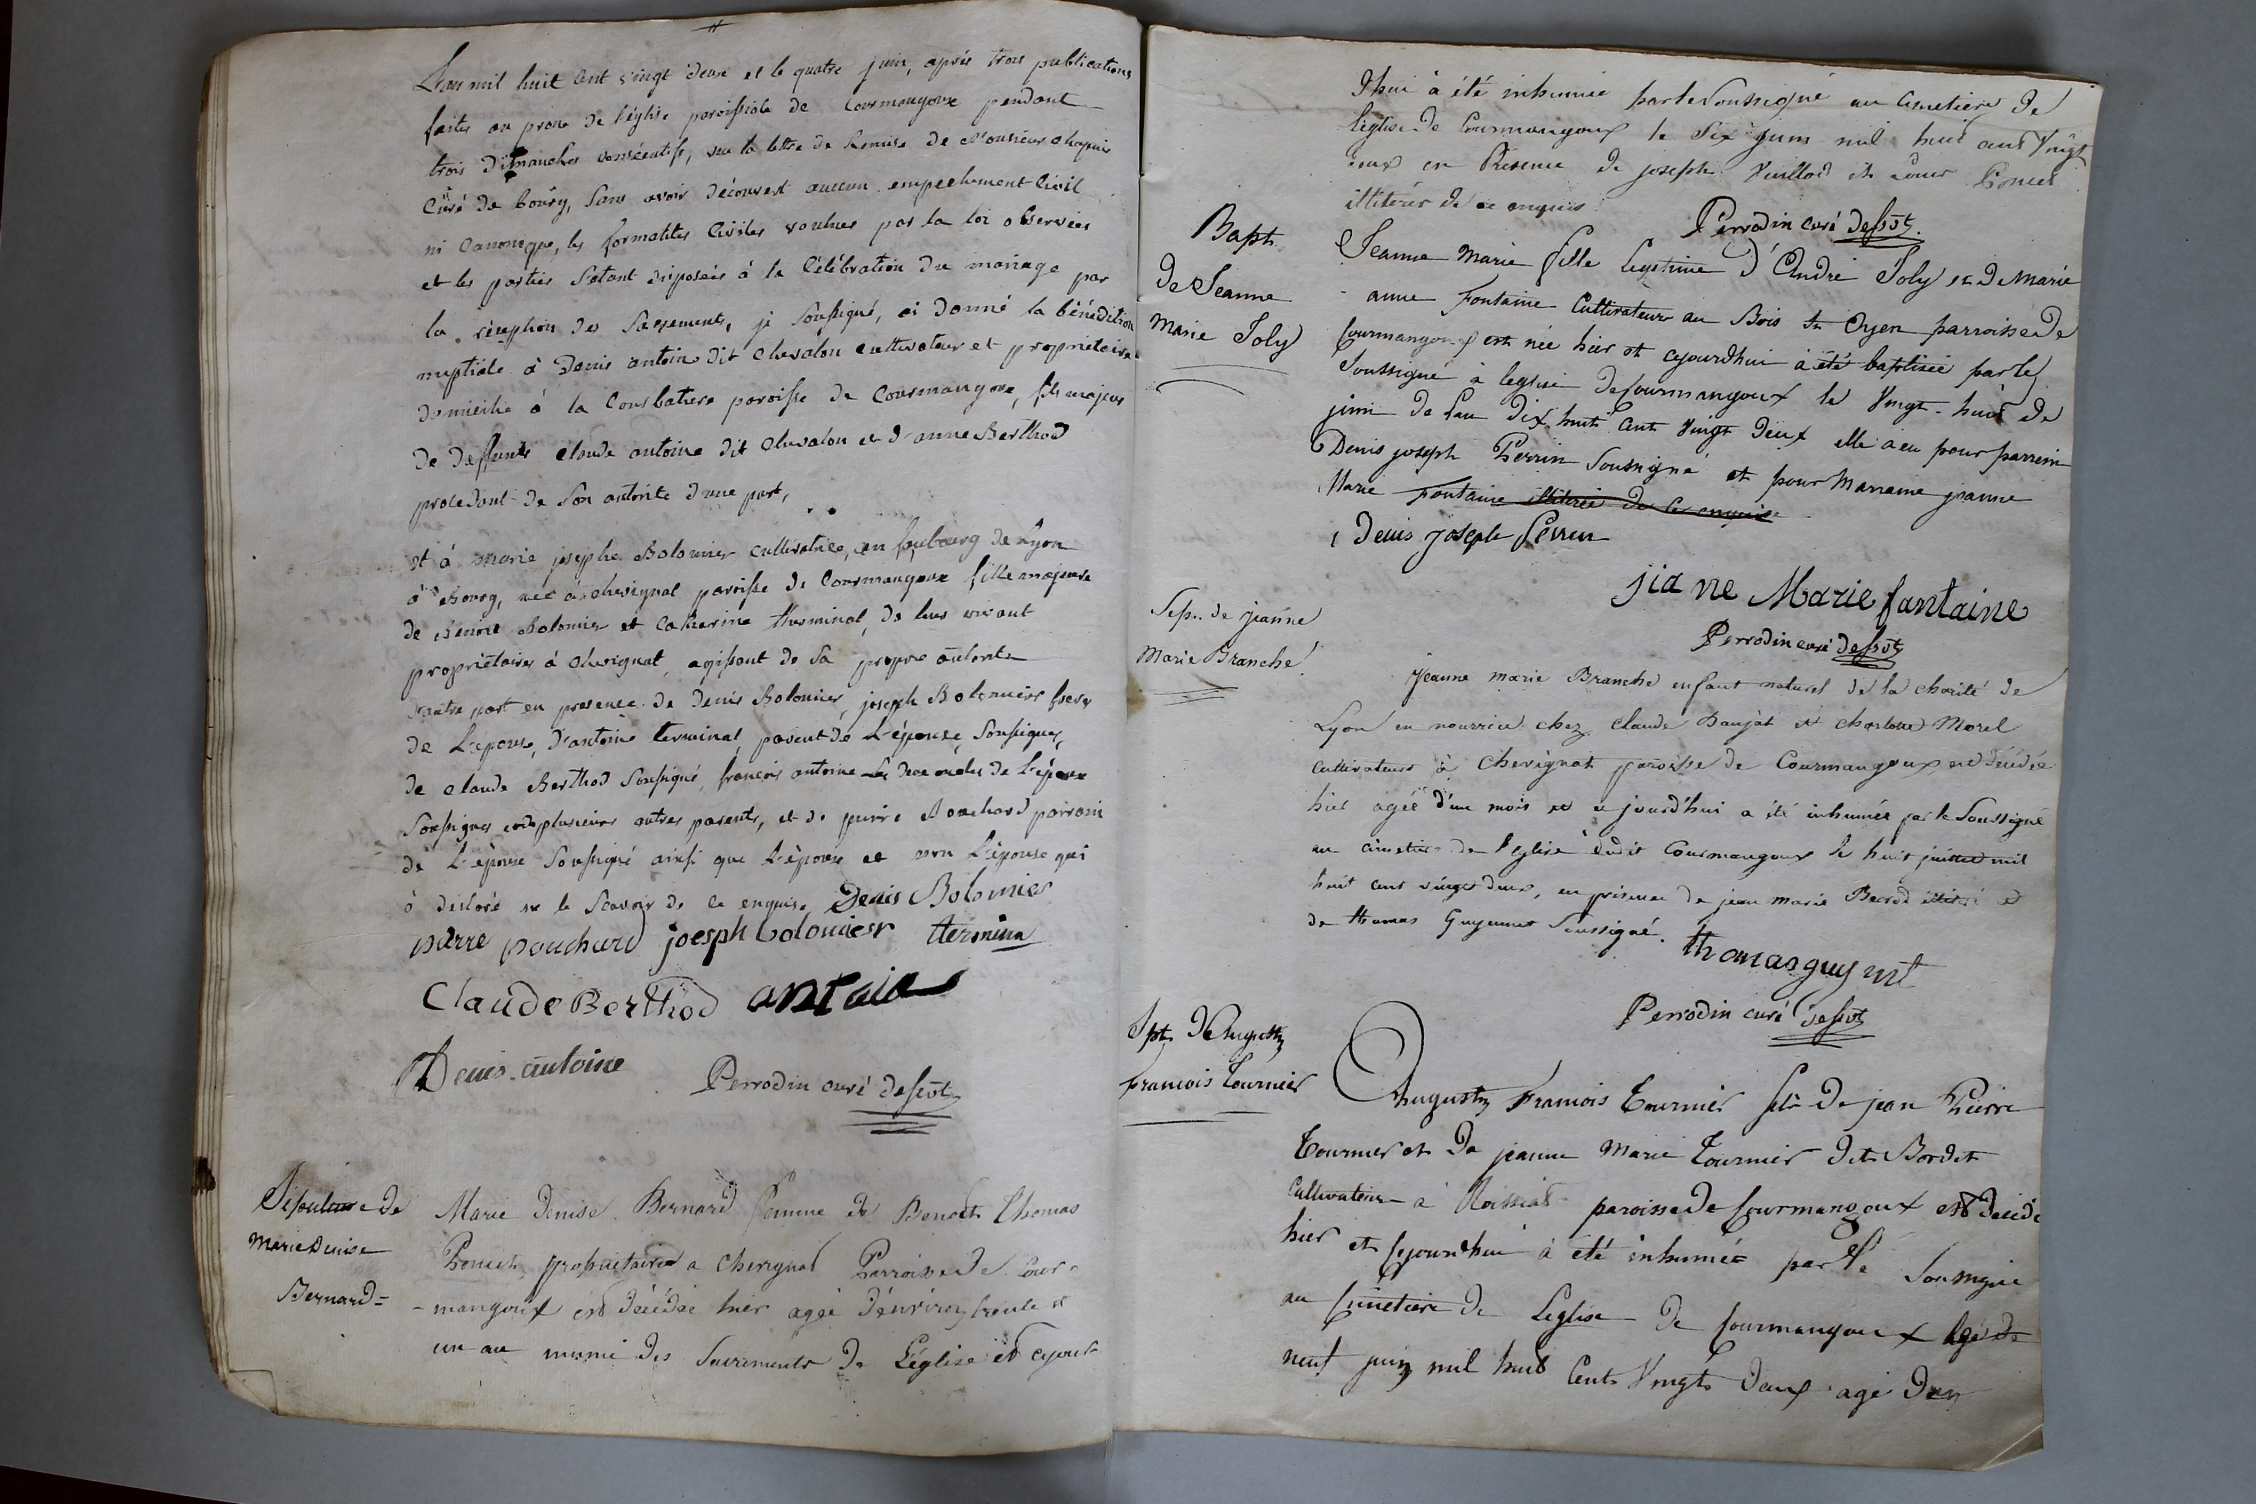 L'an mil huit cent vingt deux et le quatre juin, après trois publications
faites au prone de l'église paroissiale de Courmangoux pendant
trois dimanches consécutifs, vu la lettre de Remise de Monsieur Chapuis
Curé de bourg, sans avoir découvert aucun empechement Civil
ni Canonique, les formalités Civiles voulues par la loi observées
et les parties s'étant disposées à la Célébration du mariage par
la réception des Sacrements, je Soussigné, ai donné la bénédition
nuptiale à Denis antoine dit Chevalon cultivateur et propriétaire
domicilié à la Combatiere paroisse de Courmangoux, fils majeur
de deffunts Claude antoine dit Chevalon et d'anne Berthod
procedant de Son autorité d'une part,
et à marie josephe Bolomier cultivatrice, au faubourg de Lyon
à Bourg, née à chevignat paroisse de Courmangoux fille majeure
de Benoit Bolomier et Catherine therminal, de leur vivant
propriétaires à Chevignat, agissant de Sa propre autorité
d'autre part en presence de Denis Bolomier, joseph Bolomier freres
de L'épouse, d'antoine terminal, parent de L'épouse, Soussignés,
de Claude Berthod Soussigné, françois antoine les deux oncles de L'époux
Soussignés et de plusieurs autres parents, et de pierre Bouchard parrain
de L'épouse Soussigné ainsi que L'époux et non L'épouse qui
à déclaré ne le Scavoir de ce enquise Denis Bolomier
pierre pouchard joesph bolomier termina
Claude Berthod antoine
Denis antoine Perrodin curé dessvt
Sépulture de
Marie Denise
Bernard=
Marie Denise Bernard femme de Benoit Thomas
Poncet, propriétaire a chevignat Parroisse de Cour-
-mangoux est décédée hier agée d'environ trente et
un an munie des Sacrements de L'église et cejour
d'hui à été inhumée par le Soussigné au Cimetiere de
l'église de Courmangoux le Six juin mil huit cent Vingt
deux en Présence de joseph Vuillod et Poncet
illitérés de ce enquis
Perrodin curé dessvt.
Bapt.
de Jeanne
Marie Joly
Jeanne Marie fille légitime d'André Joly et de Marie
anne Fontaine Cultivateurs au Bois de parroisse de
Courmangoux est née hier et cejourdhui à été baptisée par le
Soussigné à leglise de Courmangoux le Vingt-huit de
juin de l'an dix huit Cent Vingt deux elle a eu pour parrein
Denis joseph Perrin Soussigné et pour Marraine jeanne
Marie Fontaine illitérée de ce enquise
Denis joseph Perrin
jia ne Marie fantaine
Perrodin curé dessvt
Sep. de jeanne
Marie Branche
Jeanne marie Branche enfant naturel de la charité de
Lyon en nourrice chez Claude Daujat et charlotte Morel
cultivateurs à Chevignat paroisse de Courmangoux est décédée
hier agée d'un mois et ce jourd'hui a été inhumée par le Soussigné
au cimetiere de l'eglise dudit Courmangoux le huit juillet mil
huit cent vingt deux, en présence de jean marie illitéré et
de thomas Guyennet Soussigné.
thomas guy nt
Perrodin curé dessvt
Spt. d'Augustin
francois Tournier
Augustin Francois Tournier fils de jean Pierre
Tournier et de jeanne Marie Tournier dite Bordet
Cultivateur à Roissiat paroisse de Courmangoux est décédé
hier et cejourdhui à été inhumée par le Soussigné
au Cimetiere de Leglise de Courmangoux agé de
neuf juin mil huit Cent Vingt deux agé d'en